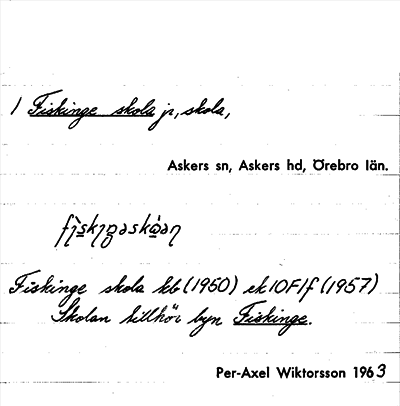 1 Fiskinge skola jr, skola,
Askers sn, Askers hd, Örebro län.
Fiskinge skola kb (1950) ek 10F1f (1957)
Skolan tillhör byn Fiskinge.
Per-Axel Wiktorsson 1963